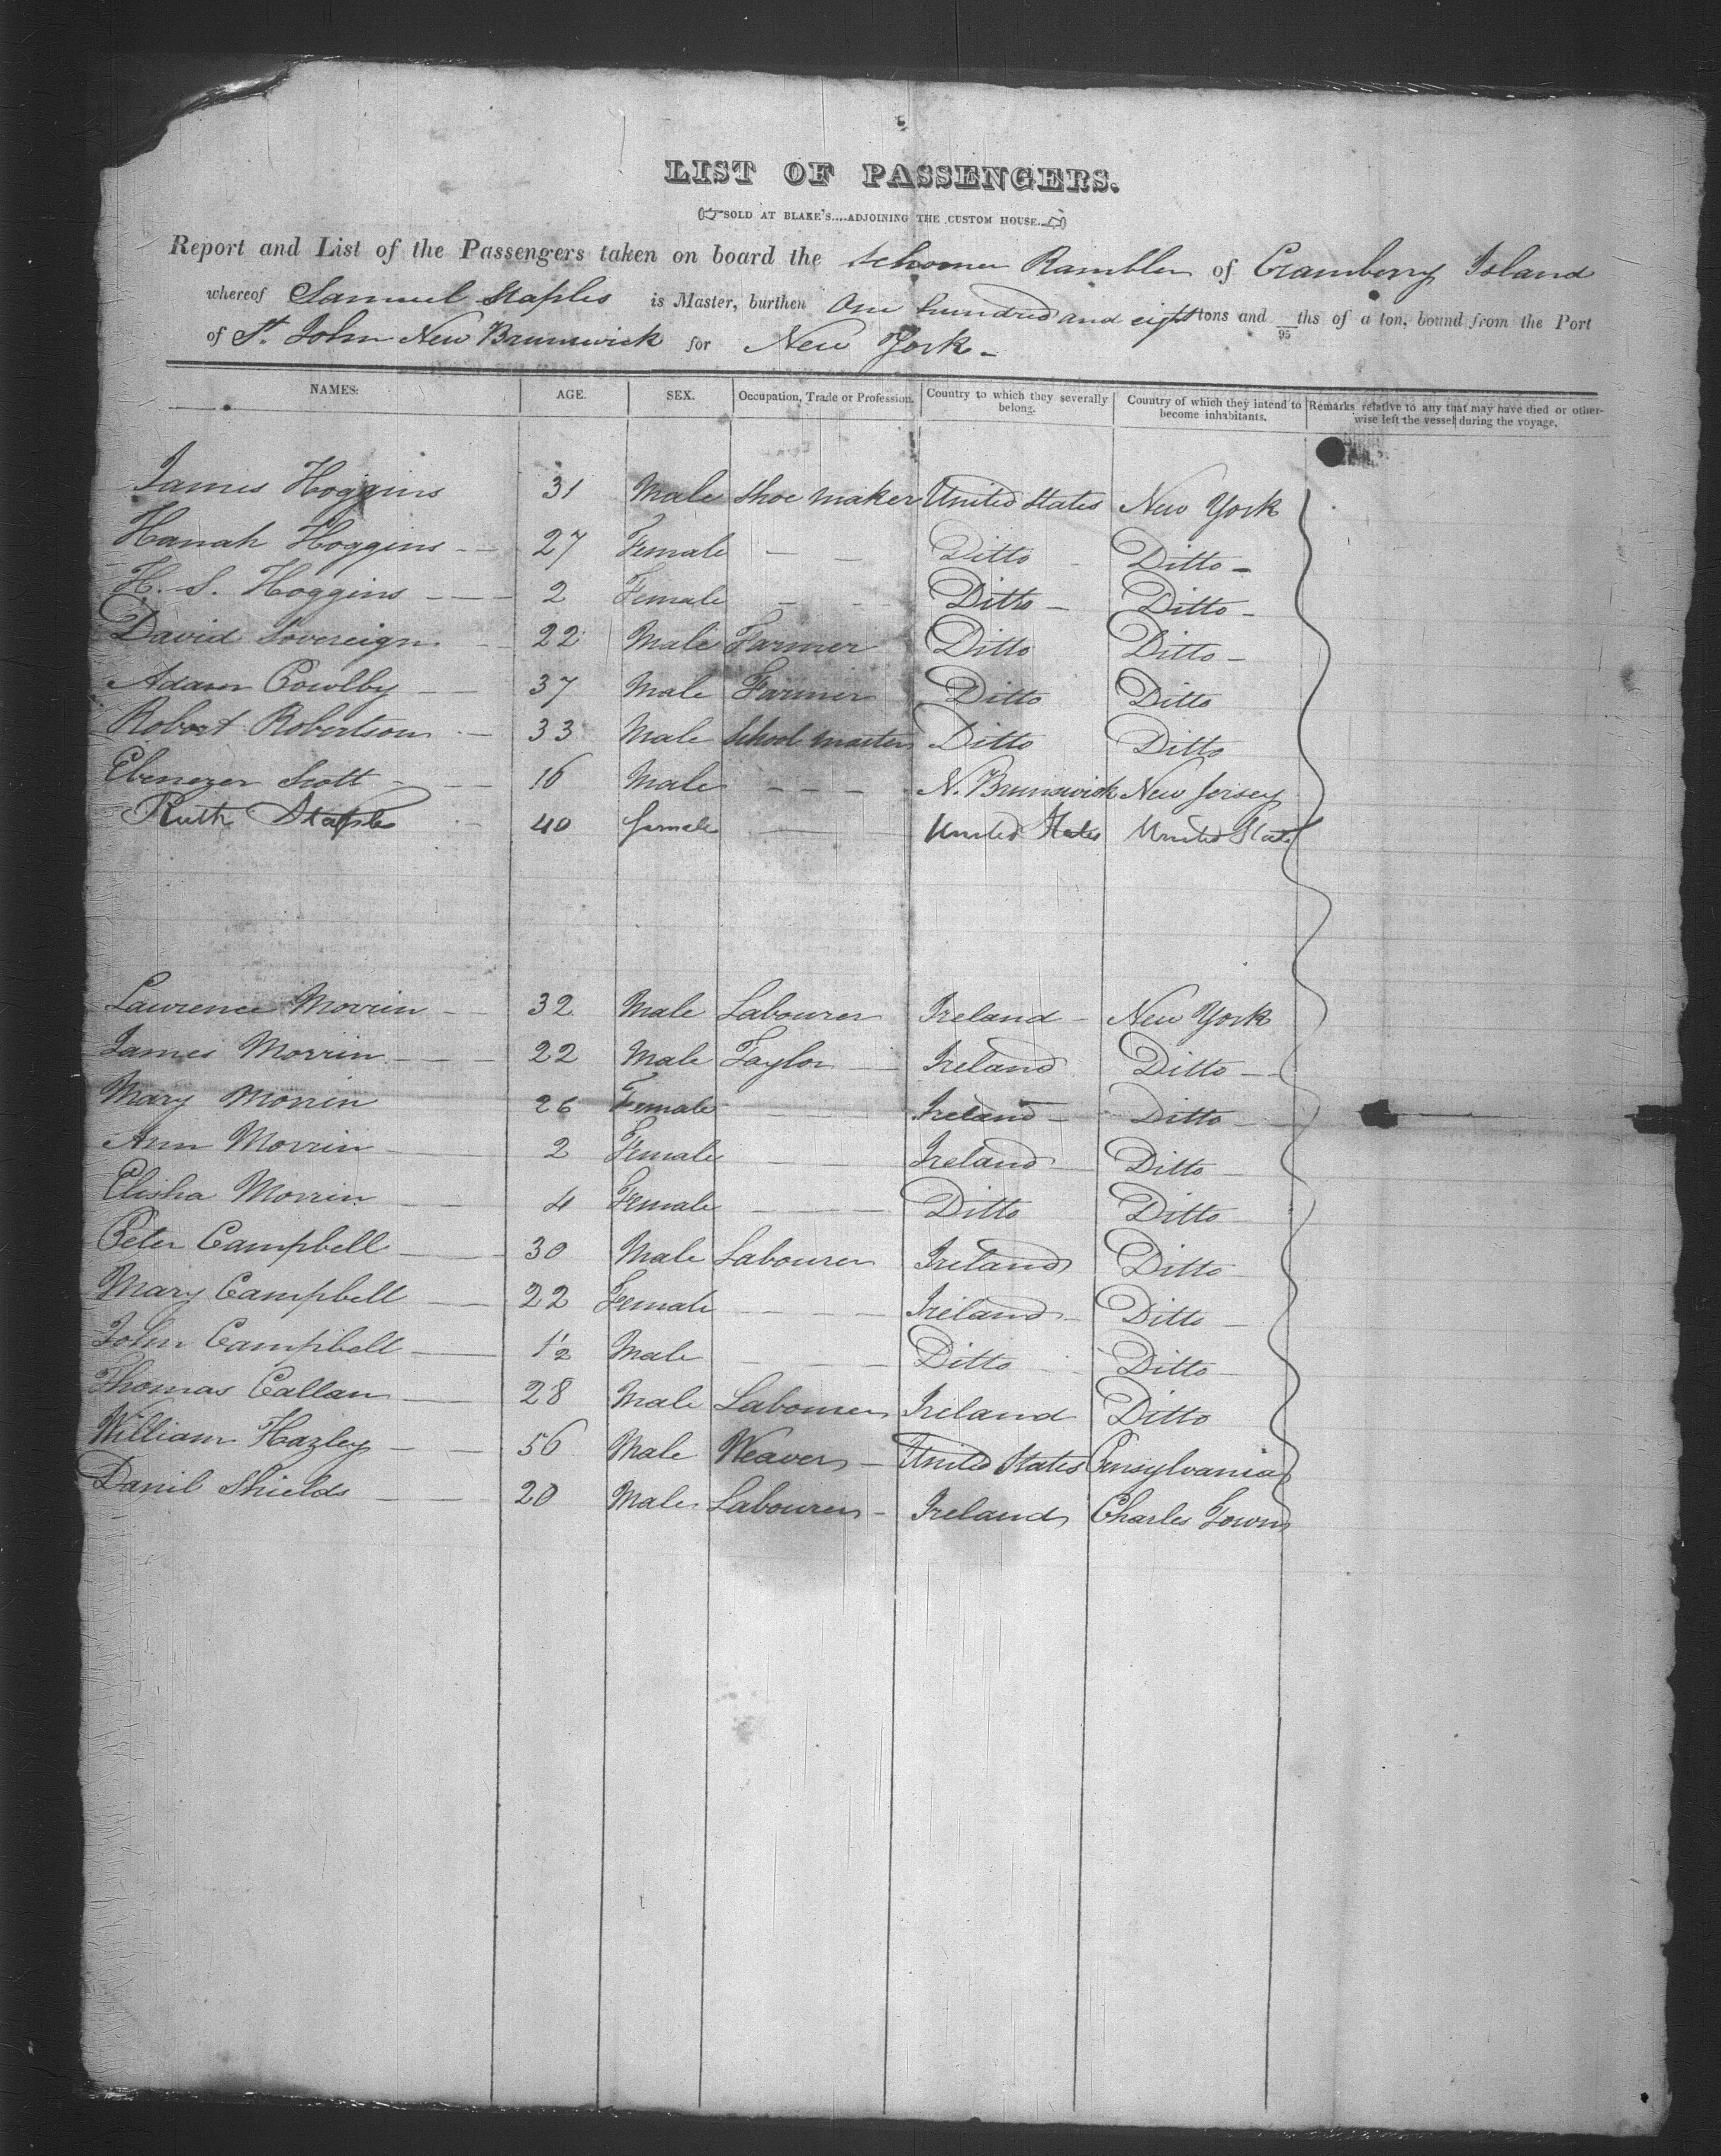 LIST OF PASSENGERS.
(☞SOLD AT BLAKE'S....ADJOINING THE CUSTOM HOUSE..☜)
Report and List of the Passengers taken on board the Schooner Rambler of Cramberry Island
whereof Samuel Staples is Master, burthen One hundred and eight tons and 95ths of a ton, bound from the Port
of St. John New Brunswick for New York -
NAMES. AGE. SEX. Occupation, Trade or Profession. Country to which they severally belong. Country of which they intend to become inhabitants. Remarks relative to any that may have died or otherwise left the vessel during the voyage.
James Hoggins 31 Male Shoe maker United States New York
Hanah Hoggins 27 Female Ditto Ditto
H. S. Hoggins 2 Female Ditto Ditto
David Sovereign 22 Male Farmer Ditto Ditto
Adam Cowlby 37 Male Farmer Ditto Ditto
Robart Robertson 33 Male School master Ditto Ditto
Ebenezer Scott 16 Male N. Brunswick New Jersey
Ruth Staples 40 female United States United States
Lawrence Morrin 32 Male Labourer Ireland New York
James Morrin 22 Male Taylor Ireland Ditto
Mary Morrin 26 Female Ireland Ditto
Ann Morrin 2 Female Ireland Ditto
Elisha Morrin 4 Female Ditto Ditto
Peter Campbell 30 Male Labourer Ireland Ditto
Mary Campbell 22 Female Ireland Ditto
John Campbell 1/2 Male Ditto Ditto
Thomas Callan 28 Male Labourer Ireland Ditto
William Hazley 56 Male Weaver United States Pensylvania
Danil Shields 20 Male Labourer Ireland Charles Town